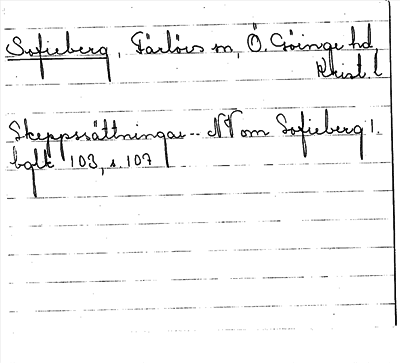 Sofieberg, Färlövs sn, Ö. Göinge hd,
Krist. l
Skeppssättningar -- NV om Sofieberg 1.
bglt 103, s. 107